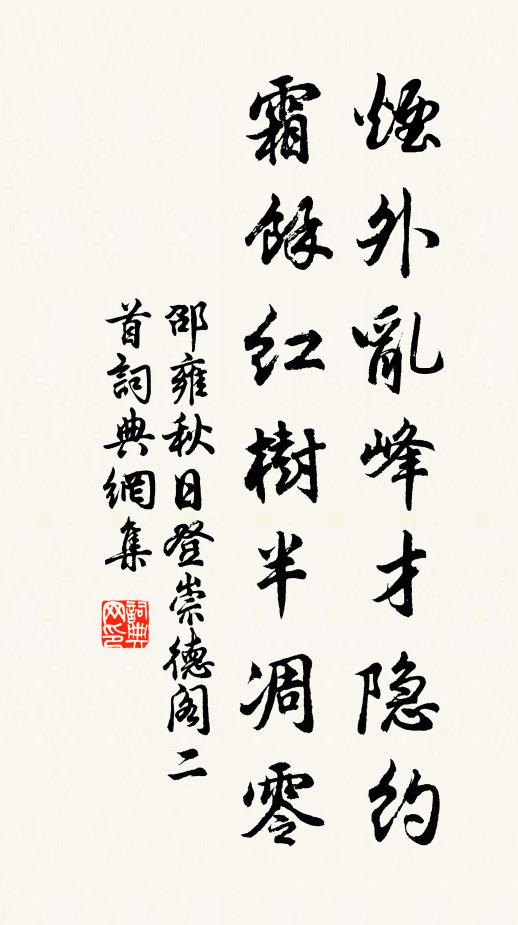 煙外亂峰才隐約
霜餘红樹半凋零
邵雍秋日登崇德阁二
首詞典網集
詞典網印